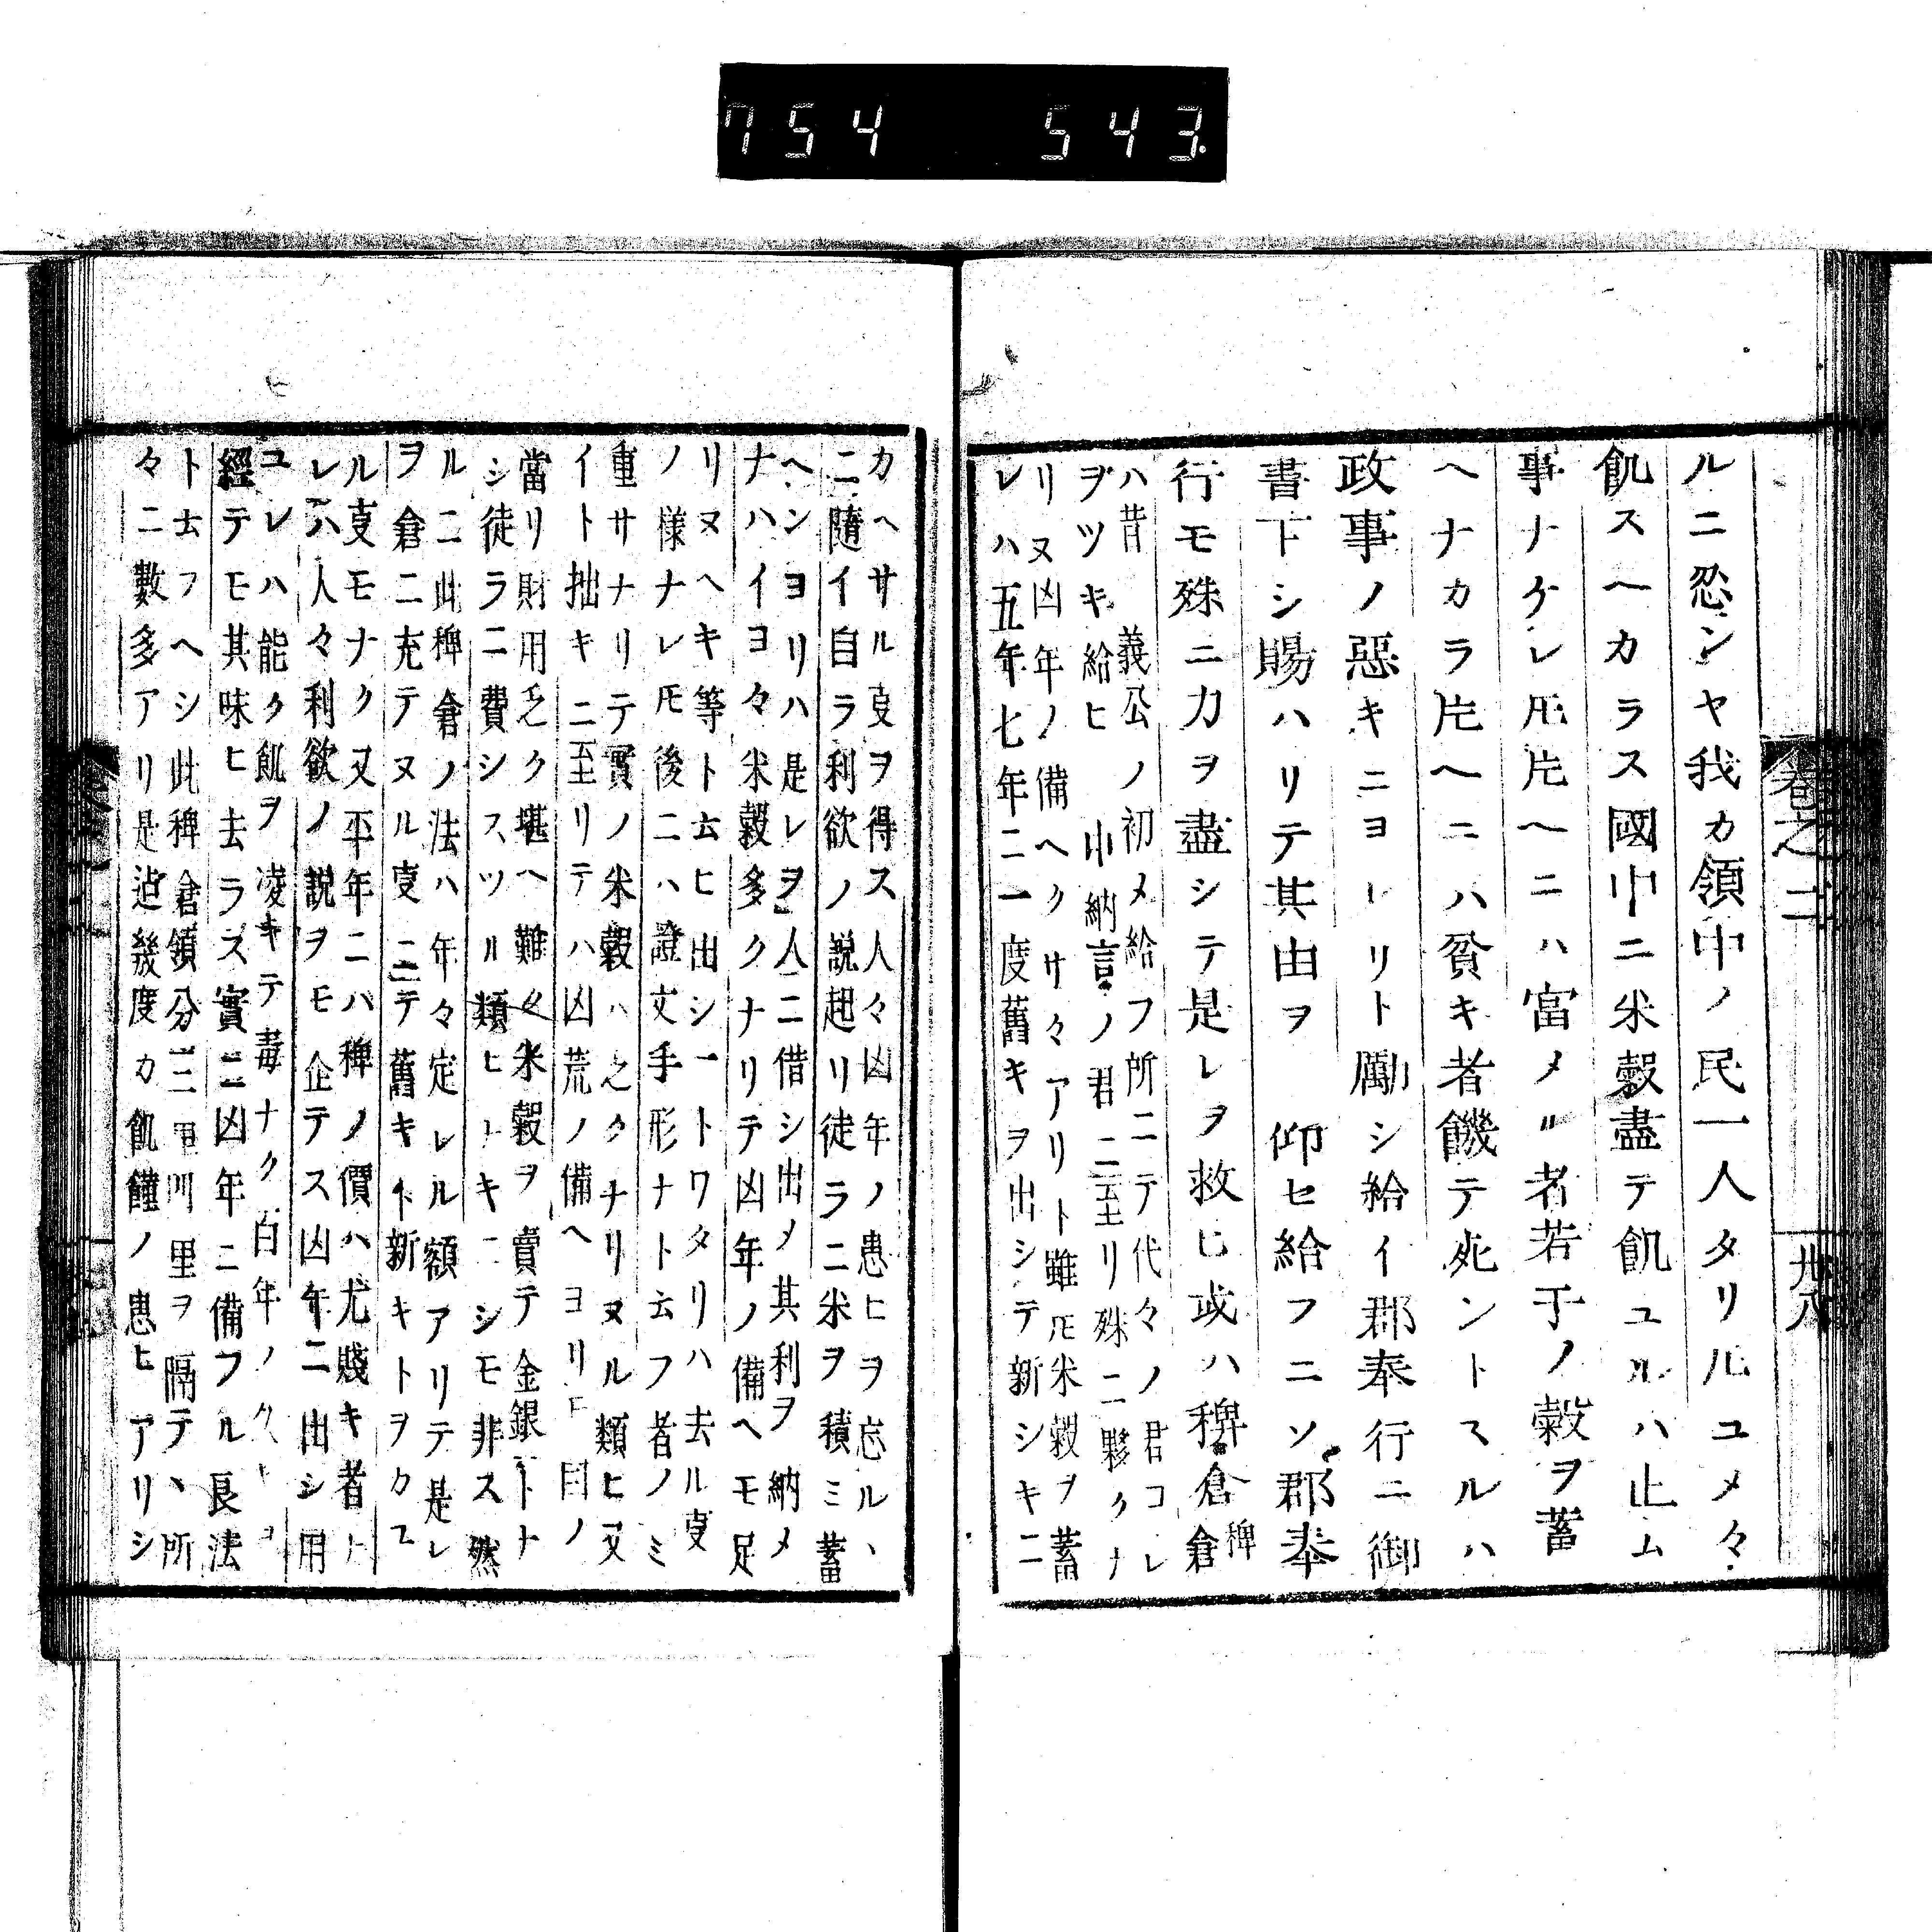 754 543.
卷之二
卅八
ルニ忍ンヤ我カ領中ノ民一人タリ𪜈ユメ々
飢スヘカラス國中ニ米穀盡テ飢ユルハ止ム
事ナケレ𪜈片ヘニハ富メル者若干ノ穀ヲ蓄
ヘナカラ片ヘニハ貧キ者饑テ死ントスルハ
政事ノ惡キニヨレリト勵シ給イ郡奉行ニ御
書下シ賜ハリテ其由ヲ 仰セ給フニソ郡奉
行モ殊ニ力ヲ盡シテ是レヲ救ヒ或ハ稗倉
稗倉
ハ昔 義公ノ初メ給フ所ニテ代々ノ君コレ
ヲツキ給ヒ 中納言ノ君ニ至リ殊ニ夥クナ
リヌ凶年ノ備ヘクサ々アリト雖𪜈米穀ヲ蓄
レハ五年七年ニ一度舊キヲ出シテ新シキニ
カヘサル㕝ヲ得ス人々凶年ノ患ヒヲ忘ルヽ
ニ隨イ自ラ利欲ノ説起リ徒ラニ米ヲ積ミ蓄
ヘンヨリハ是レヲ人ニ借シ出メ其利ヲ納メ
ナハイヨ々米穀多クナリテ凶年ノ備ヘモ足
リヌヘキ等ト云ヒ出シ一トワタリハ去ル㕝
ノ様ナレ𪜈後ニハ證文手形ナト云フ者ノミ
重サナリテ實ノ米穀ハ乏クナリヌル類ヒ又
イト拙キニ至リテハ凶荒ノ備ヘヨリ𪜈目ノ
當リ財用乏ク堪ヘ難タ米穀ヲ賣テ金銀トナ
シ徒ラニ費シスツル類ヒトキニシモ非ス然
ルニ此稗倉ノ法ハ年々定レル額アリテ是レ
ヲ倉ニ充テヌル㕝ニテ舊キト新キトヲカユ
ル㕝モナク又平年ニハ稗ノ價ハ尤賤キ者ナ
レハ人々利欲ノ説ヲモ企テス凶年ニ出シ用
ユレハ能ク飢ヲ凌キテ毒ナク百年ノ久キヲ
經テモ其味ヒ去ラス實ニ凶年ニ備フル良法
ト云フヘシ此稗倉領分二三里四里ヲ隔テヽ所
々ニ數多アリ是迠幾度カ飢饉ノ患ヒアリシ